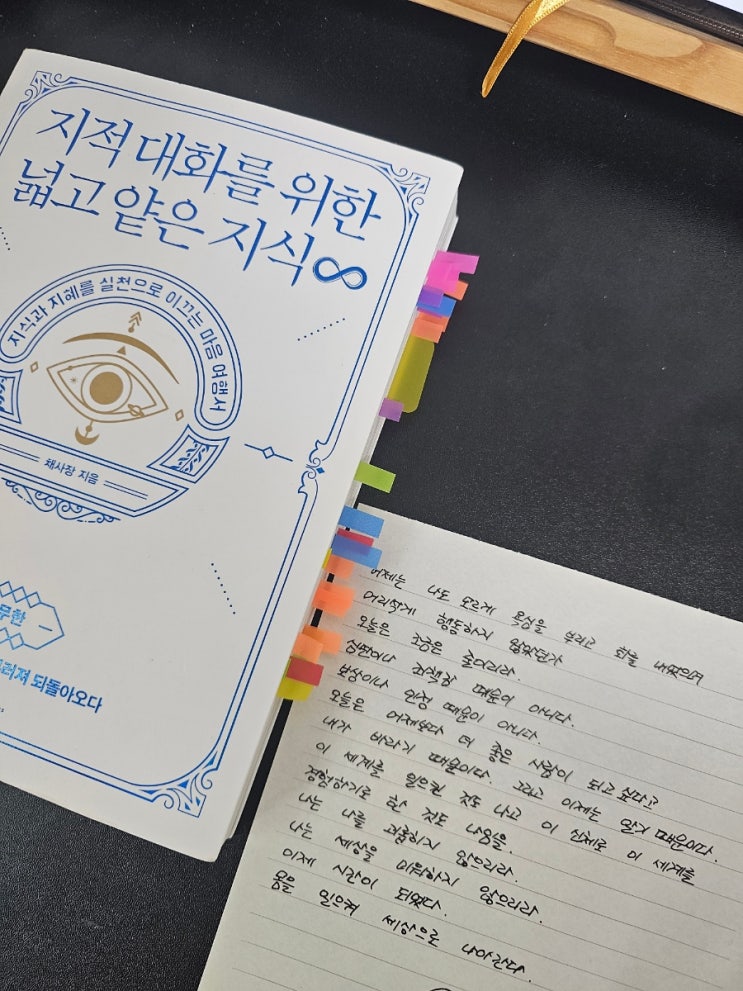 지적 대화를 위한
넓고 얕은 지식∞
지식과 지혜를 실천으로 이끄는 마음 여행서
채사장 지음
무한
러져 되돌아오다
어제는 나도 모르게 욕심을 부리고 화를 내었으며
어리석게 행동하지 않았던가
오늘은 조금은 줄이리라.
심판이나 죄책감 때문이 아니다.
보상이나 인정 때문이 아니다.
오늘은 어제보다 더 좋은 사람이 되고 싶다고
내가 바라기 때문이다. 그리고 이제는 알기 때문이다.
이 세계를 일으킨 것도 나고 이 신체로 이 세계를
경험하기로 한 것도 나임을.
나는 나를 괴롭히지 않으리라.
나는 세상을 미워하지 않으리라.
이제 시간이 되었다.
몸을 일으켜 세상으로 나아간다.